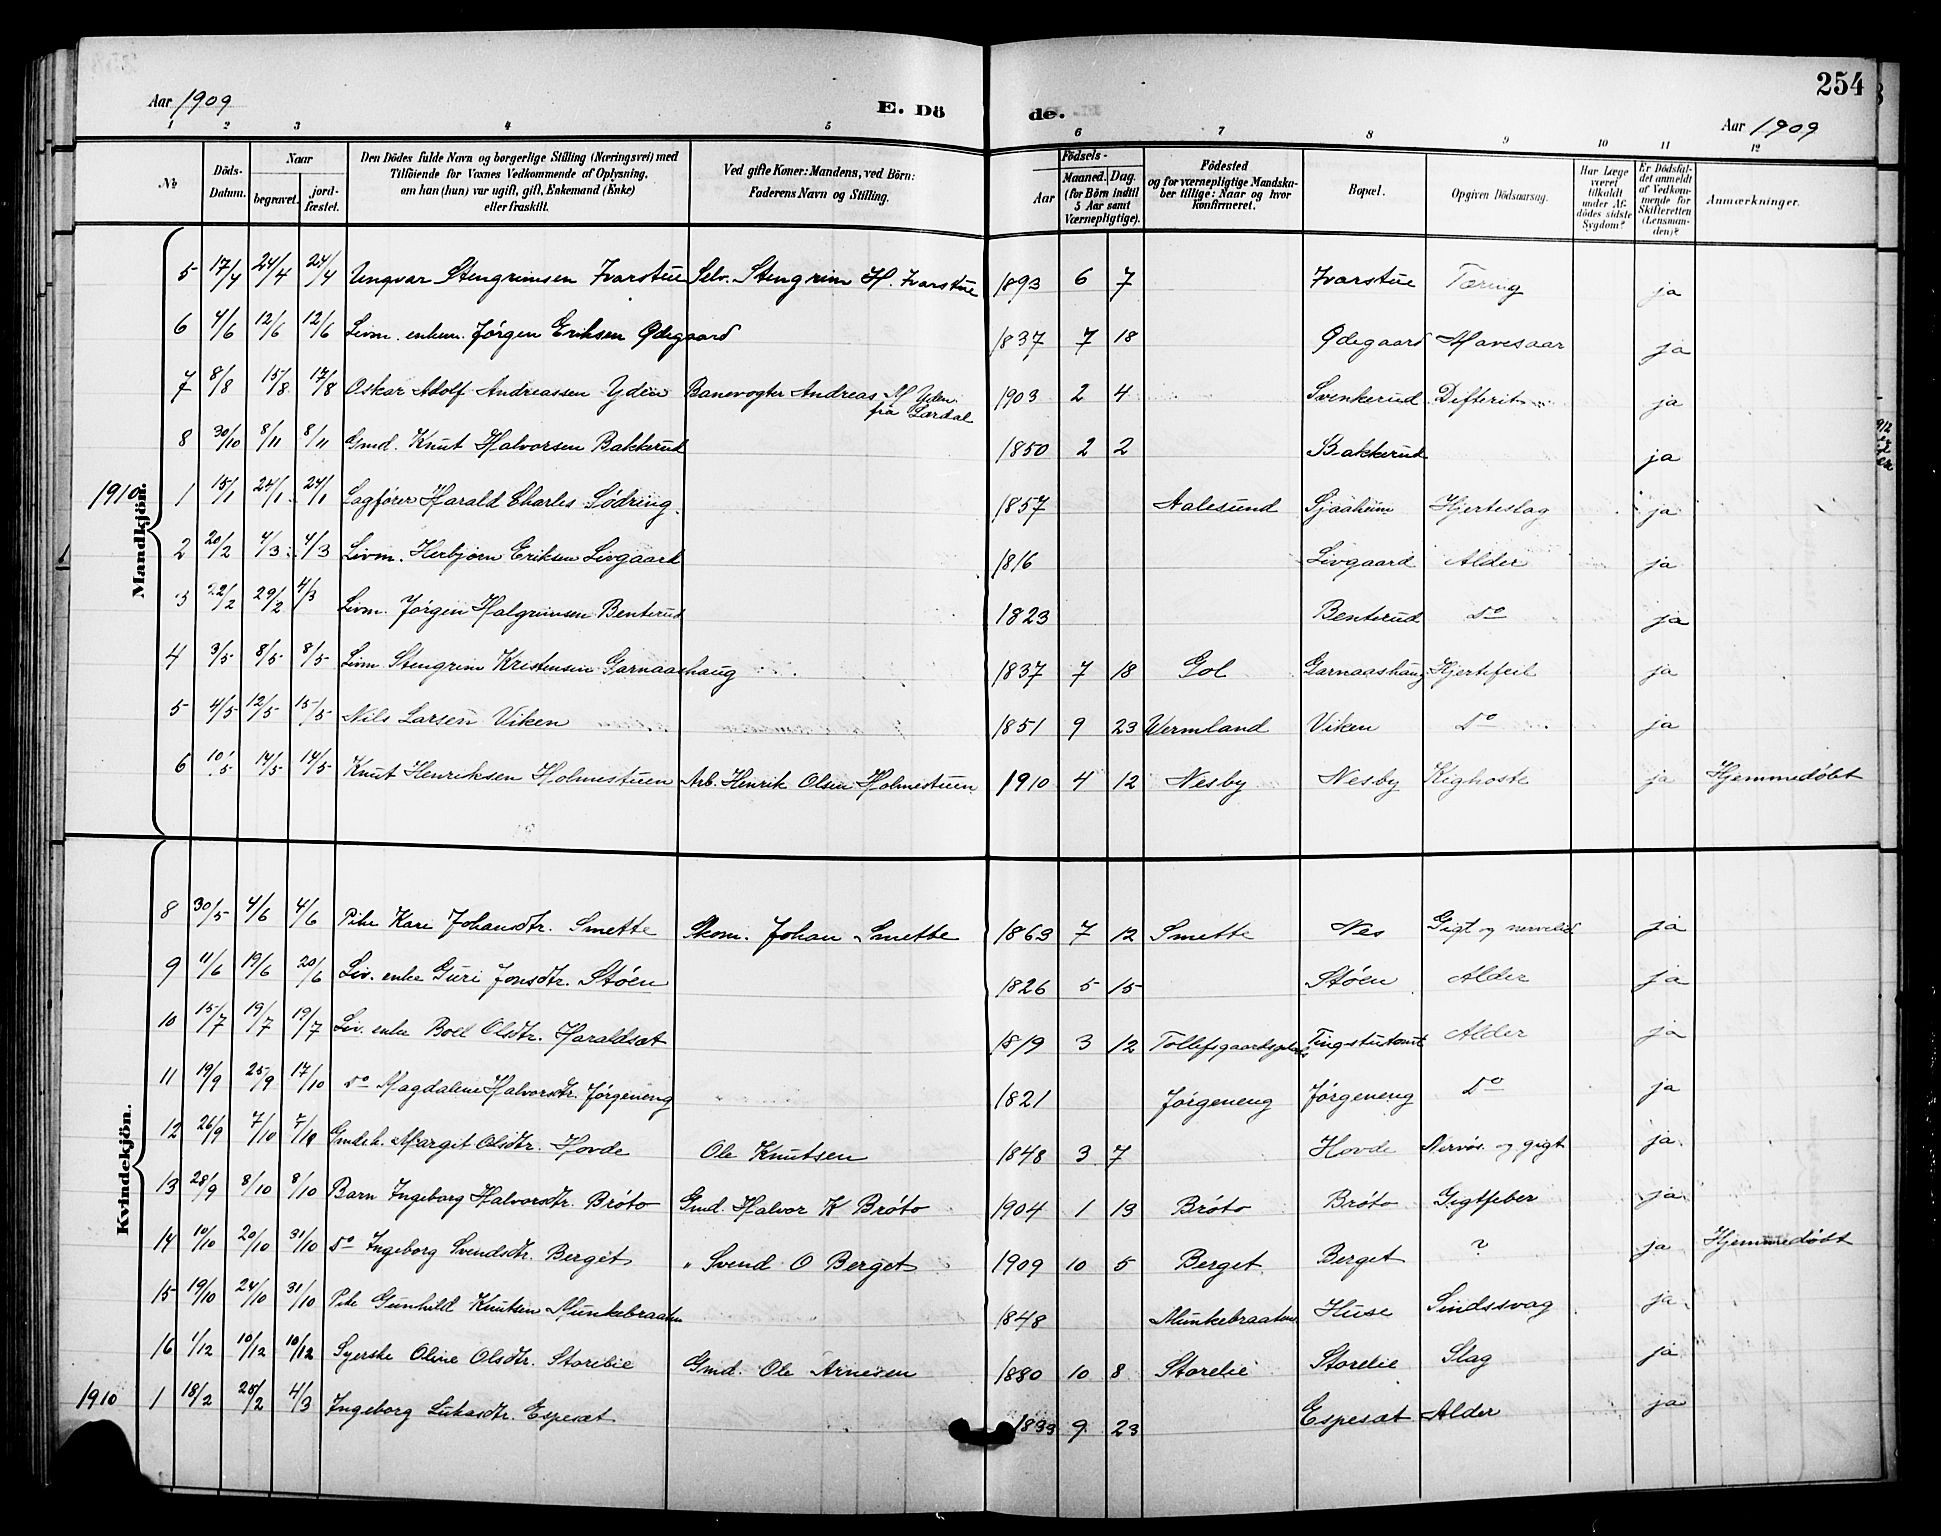 254
Aar 1909 E. Dö de. Aar 1909
1 2 3 4 5 6 7 8 9 10 11 12
No. Döds-Datum. Naar begravet. jord-fæstet. Den Dödes fulde Navn og borgerlige Stilling (Næringsvei) med Tilföiende for Voxnes Vedkommende af Oplysning, om han (hun) var ugift, gift, Enkemand (Enke) eller fraskilt. Ved gifte Koner: Mandens, ved Börn: Faderens Navn og Stilling. Födsels- Aar Maaned. Dag. (for Börn indtil 5 Aar samt Værnepligtige). Födested og for værnepligtige Mandskaber tillige: Naar og hvor konfirmeret. Bopæl. Opgiven Dödsaarsag. Har Læge været tilkaldt under Afdödes sidste Sygdom? Er Dödsfaldet anmeldt af Vedkommende for Skifteretten (Lensmanden)? Anmærkninger.
Mandkjön.
5 17/4 24/4 24/4 Ungvar Stengrimsen Ivarstue Selv. Stengrim H. Ivarstue 1893 6 7 Ivarstue Tæring ja
6 4/6 12/6 12/6 Livm. enkem. Jørgen Eriksen Ødegaard 1837 7 18 Ødegaard Mavesaar ja
7 8/8 15/8 17/8 Oskar Adolf Andreassen Yden Banevogter Andreas M Yden fra Lærdal 1903 2 4 Svenkerud Difterit ja
8 30/10 8/11 8/11 Gmd. Knut Halvorsen Bakkerud 1850 2 2 Bakkerud ja
1910 1 15/1 24/1 24/1 Sagfører Harald Charles Södring. 1857 Aalesund Sjaaheim Hjerteslag ja
2 20/2 4/3 4/3 Livm. Herbjørn Eriksen Livgaard 1816 Livgaard Alder ja
3 22/2 29/2 4/3 Livm. Jørgen Halgrimsen Benterud 1823 Benterud do ja
4 3/5 8/5 8/5 Livm Stengrim Kristensen Garnaashaug 1837 7 18 Gol Garnaashaug Hjertefeil ja
5 4/5 12/5 15/5 Nils Larsen Viken 1851 9 23 Vermland Viken do ja
6 10/5 14/5 14/5 Knut Henriksen Holmestuen Arb. Henrik Olsen Holmestuen 1910 4 12 Nesby Nesby Kighoste ja Hjemmedøbt
Kvindekjön.
8 30/5 4/6 4/6 Pike Kari Johansdtr. Smette Skom. Johan Smette 1863 7 12 Smette Nes Gigt og ja
9 11/6 19/6 20/6 Liv. enke Guri Jonsdtr. Støen 1826 5 15 Støen Alder ja
10 15/7 19/7 19/7 Liv. enke Boel Olsdtr. Haraldset 1819 3 12 Alder ja
11 19/9 25/9 17/10 do Magdalene Halvorsdtr. Jørgeneng 1821 Jørgeneng Jørgeneng do ja
12 26/9 7/10 7/10 Gmdek. Margit Olsdtr. Hovde Ole Knutsen 1848 3 7 Hovde Nervøs. og gigt ja.
13 28/9 8/10 8/10 Barn Ingeborg Halvorsdtr. Bröto Gmd. Halvor K Bröto 1904 1 13 Bröto Bröto Gigtfeber ja.
14 10/10 20/10 31/10 do Ingeborg Svendsdtr. Berget " Svend O Berget 1909 10 5 Berget Berget ? ja Hjemmedøbt
15 19/10 24/10 31/10 Pike Gunhild Knutsen Munkebraaten 1848 Munkebraaten Huse Sindssvag ja.
16 1/12 10/12 10/12 Syerske Oline Olsdtr. Storelie Gmd. Ole Arnesen 1880 10 8 Storelie Storelie Slag ja
1910 1 18/2 25/2 4/3 Ingeborg Lukasdtr. Espeset 1833 9 23 Espeset Alder ja